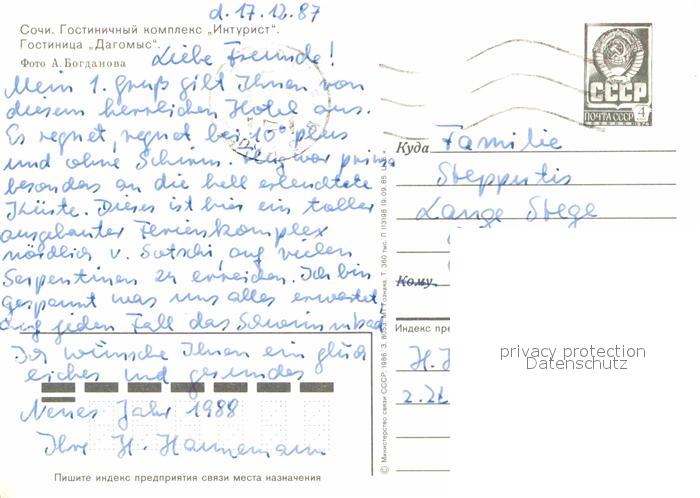 d. 17.12.87
Сочи. Гостиничный комплекс „Интурист“.
Гостиница „Дагомыс“.
Фото А. Богданова
Liebe Freunde!
Mein 1. Gruß gilt Ihnen von
diesem herrlichen Hotel aus.
Es regnet, regnet bei 10° plus
und ohne Schirm. Flug war prima
besonders an die hell erleuchtete
Küste. Dieses ist hier ein toller
ausgebauter Ferienkomplex
nördlich v. Sotschi auf vielen
Serpentinen zu erreichen. Ich bin
gespannt was uns alles erwartet
auf jeden Fall das Schwimmbad
Ich wünsche Ihnen ein glück
eiches und gesundes
Neues Jahr 1988
Ihre H. Hannemann
Пишите индекс предприятия связи места назначения
© Министерство связи СССР, 1986. З. 8053. МТ Гознака. Т. 360 тыс. П 113198 19.09.85. Ц. 4 к.
СССР
ПОЧТА СССР 4
Куда Familie
Stepputis
Lange Stege
Кому
Индекс пре
H.
2.2
privacy protection
Datenschutz